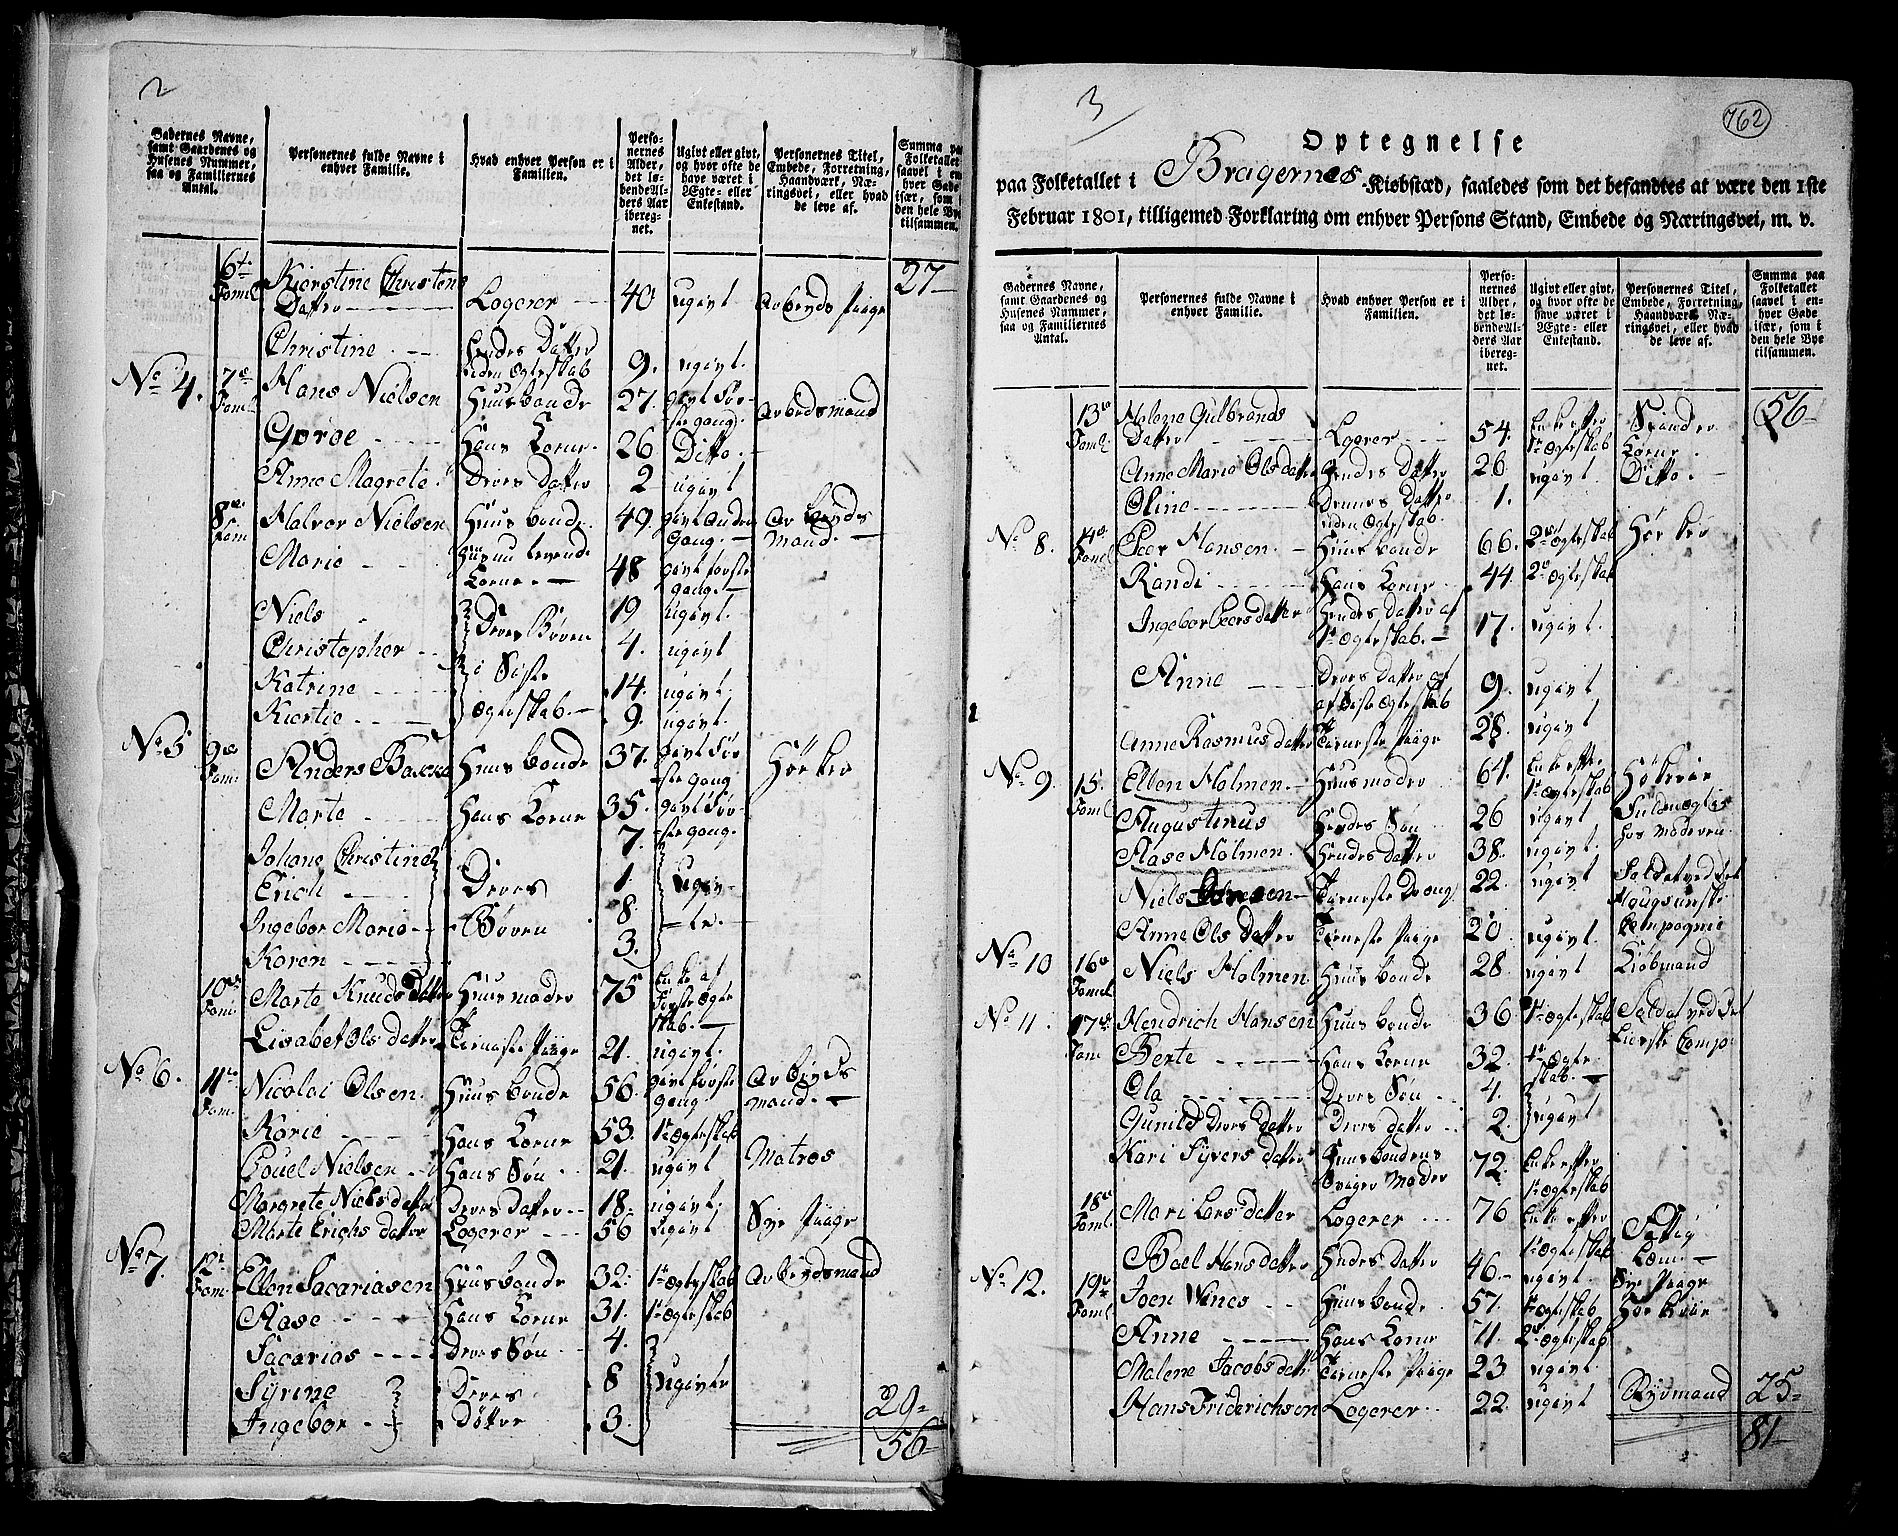 2
Gadernes Navne, samt Gaardenes og Husenes Nummer, saa og Familiernes Antal.
Personernes fulde Navne i enhver Familie.
Hvad enhver Person er i Familien.
Personernes Alder, det løbende Alders Aar iberegnet.
Ugivt eller givt, og hvor ofte de have været i Ægte- eller Enkestand.
Personernes Titel, Embede, Forretning, Haandværk, Næringsvei, eller hvad de leve af.
Summa paa Folketallet saavel i enhver Gade især, som i den hele Bye tilsammen.
27
6te Faml Kierstine Christens Datter Logerer 40 ugivt Arbeyds Piige
Christine Hendes Datter uden Ægteskab 9. ugivt.
No 4. 7de Faml Hans Nielsen Huusbonde 27. givt første gang. Arbedsmand
Goroe Hans Kone 26 Ditto.
Anne Magrete Deres Datter 2 ugivt
8de Fam Halvor Nielsen Huusbonde 49. givt Anden Gang. Arbeyds Mand.
Marie nu levende Kone. 48 givt første gang.
Niels Deres Børn 19 ugivt.
Christopher 4. ugivt
Katrine i Siste 14. ugivt.
Kiersti Ægteskab. 9. ugivt.
No 5 9de Fam. Anders Huusbonde 37. givt første gang Hørker
Marte Hans Kone 35. givt første gang.
Johane Christine 7.
Erich Deres 1. ugiv-
Ingebor Marie Børn 8. te.
Karen 3.
10de Fam: Marte Knudsdatter Huusmoder 75 Enke af Første Ægteskab.
Lisabet Olsdatter Tieneste Piige 21. ugivt.
No 6. 11te Fam. Nicolai Olsen. Huusbonde 56. givt første gang. Arbeyds Mand.
Karie Hans Kone 53. 1te Ægteskab
Pouel Nielsen Hans Søn 21. ugivt Matros
Margrete Nielsdatter Deres Datter 18. ugivt.
Marte Erichs datter Logerer 56 ugivt Sye Piige
No 7. 12te Fam. Ellen Sacariasen Huusbonde 32. 1te Ægteskab Arbeydsmand
Aase Hans Kone 31. 1te Ægteskab
Sacarias Deres Søn 4.
Syrine Deres 8 ugivte
Ingebor Døttre 3.
29
56
3
762
Optegnelse
paa Folketallet i Bragernes Kiøbstæd, saaledes som det befandtes at være den 1ste
Februar 1801, tilligemed Forklaring om enhver Persons Stand, Embede og Næringsvei, m. v.
Gadernes Navne, samt Gaardenes og Husenes Nummer, saa og Familiernes Antal.
Personernes fulde Navne i enhver Familie.
Hvad enhver Person er i Familien.
Personernes Alder, det løbende Alders Aar iberegnet.
Ugivt eller givt, og hvor ofte de have været i Ægte- eller Enkestand.
Personernes Titel, Embede, Forretning, Haandværk, Næringsvei, eller hvad de leve af.
Summa paa Folketallet saavel i enhver Gade især, som i den hele Bye tilsammen.
56
13de Faml. Helene Gulbrands Datter Logerer 54. Enke efter 1te Ægteskab Kone.
Anne Marie Olsdatter Hendes Datter 26 ugivt. Ditto.
Oline Dennes Datter uden Ægteskab. 1.
No 8. 14de Faml Peer Hansen. Huusbonde 66. 2det Ægteskab Hørker
Randi Hans Kone 44. 2de Ægteskab
Ingebor Peersdatter Hendes Datter af 1te Ægteskab. 17. ugivt.
Anne Deres Datter af Ægteskab 9. ugivt
Anne Rasmus datter Tieneste Piige 28. ugivt
No 9. 15. Faml Ellen Holmen. Huusmoder 64. Enke efter 1te Ægteskab
Augustinus Hendes Søn 26 ugivt Fuldmægtig hos Moderen.
Aase Holmen. Hendes Datter 38. ugivt.
Niels Tieneste Dreng 22. ugivt Soldat ved det Compagnie
Anne Ols datter Tieneste Piige 20. ugivt.
No 10 16de Faml Niels Holmen Huusbonde 28. ugivt Kiøbmand
No 11. 17de Fam Hendrich Hansen Huusbonde 36. 1te Ægteskab Soldat ved Det Lierske Comp.
Berte Hans Kone 32. 1te Ægteskab.
Ola Deres Søn 4.
Gunild Deres datter Deres datter 2. ugivt
Kari Syvers datter Huusbondens Moder 72. Enke efter 1te Ægteskab
18de Faml Mari Lars datter Logerer 76 Enke efter 1te Ægteskab Fattig Lem
Boel Hans datter Hendes Datter 46. ugivt. Sye Piige
No 12. 19de Faml Joen Huusbonde 57. 1te Ægteskab
Anne Hans Kone 71. 2de Ægteskab
Malene Jacobs datter Tieneste Piige 23 ugivt
Hans Friderichsen Logerer 22. ugivt 25
81